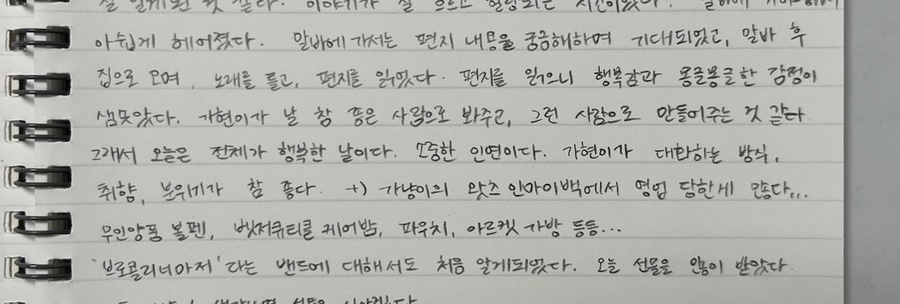 잘 알게된 것 같다. 이야기가 잘 흐르고 힐링되는 시간이었다.
아쉽게 헤어졌다. 알바에 가서는 편지 내용을 궁금해하며 기대되었고, 알바 후
집으로 오며, 노래를 듣고, 편지를 읽었다. 편지를 읽으니 행복함과 몽글몽글한 감정이
샘솟았다. 가현이가 날 참 좋은 사람으로 봐주고, 그런 사람으로 만들어주는 것 같다
그래서 오늘은 전체가 행복한 날이다. 소중한 인연이다. 가현이가 대화하는 방식,
취향, 분위기가 참 좋다. +) 가낭이의 왓츠인마이백에서 영업 당한게 많다...
무인양품 볼펜, 벳저큐티클 케어밤, 파우치, 아르켓 가방 등등...
'브로콜리너마저'라는 밴드에 대해서도 처음 알게되었다. 오늘 선물을 많이 받았다.